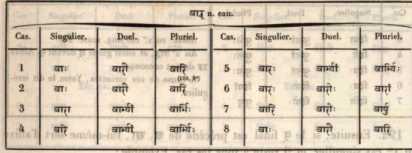 वार् n. eau.
Cas. Singulier. Duel. Pluriel. Cas. Singulier. Duel. Pluriel.
1 वाः वारी वारि 5 वारः वार्भ्यां वार्भ्यः
(159, b)
2 वाः वारी वारि 6 वारः वारोः वारां
3 वारा वार्भ्यां वार्भिः 7 वारि वारोः वार्षु
4 वारे वार्भ्यां वार्भ्यः 8 वाः वारी वारि